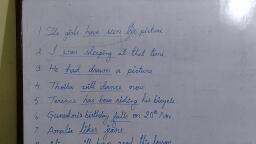 1 The girls have seen the picture
2 I was sleeping at that time
3 He had drawn a picture
4 Tholla will dance now
5 Terance has been riding his bicycle
6 Ganeshan's birthday falls on 20th Nov
7 Amalie likes
8 will have read the lesson